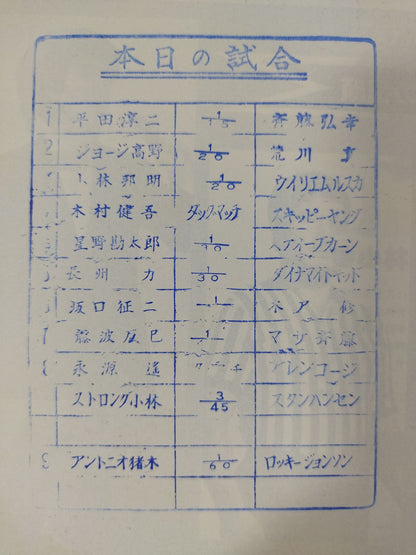 本日の試合
1 平田淳二 1/15 斉藤弘幸
2 ジョージ高野 1/20 荒川真
小林邦明 1/20 ウイリエムルスカ
木村健吾 タッグマッチ スキッピーヤング
星野勘太郎 1/30
長州力 1/30 ダイナマイトキッド
坂口征二 1 木戸修
藤波辰巳 1 マサ斉藤
8 永源遙 アレンコージ
ストロング小林 3/45 スタンハンセン
9 アントニオ猪木 1/60 ロッキージョンソン